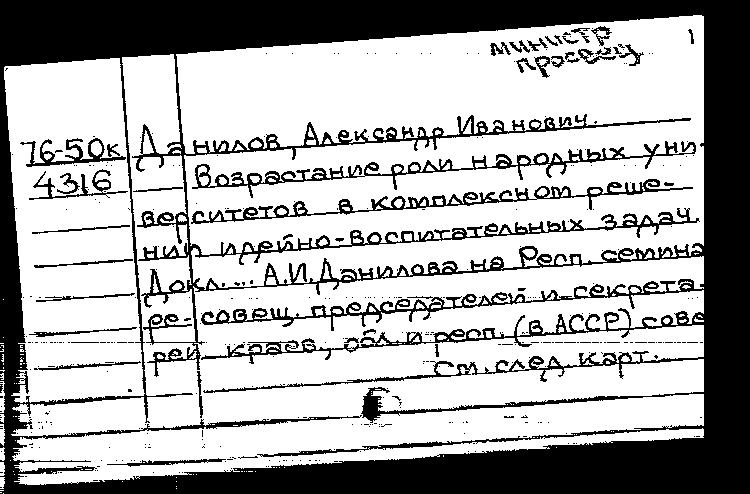 министр 1
просвещ
76-50к Данилов, Александр Иванович.
4316 Возрастание роли народных уни-
верситетов в комплексном реше-
нии идейно-воспитательных задач.
Докл. ... А.И. Данилова на Респ. семина
ре-совещ. председателей и секрета-
рей краев., обл. и респ. (в АССР) сове
См. след. карт.